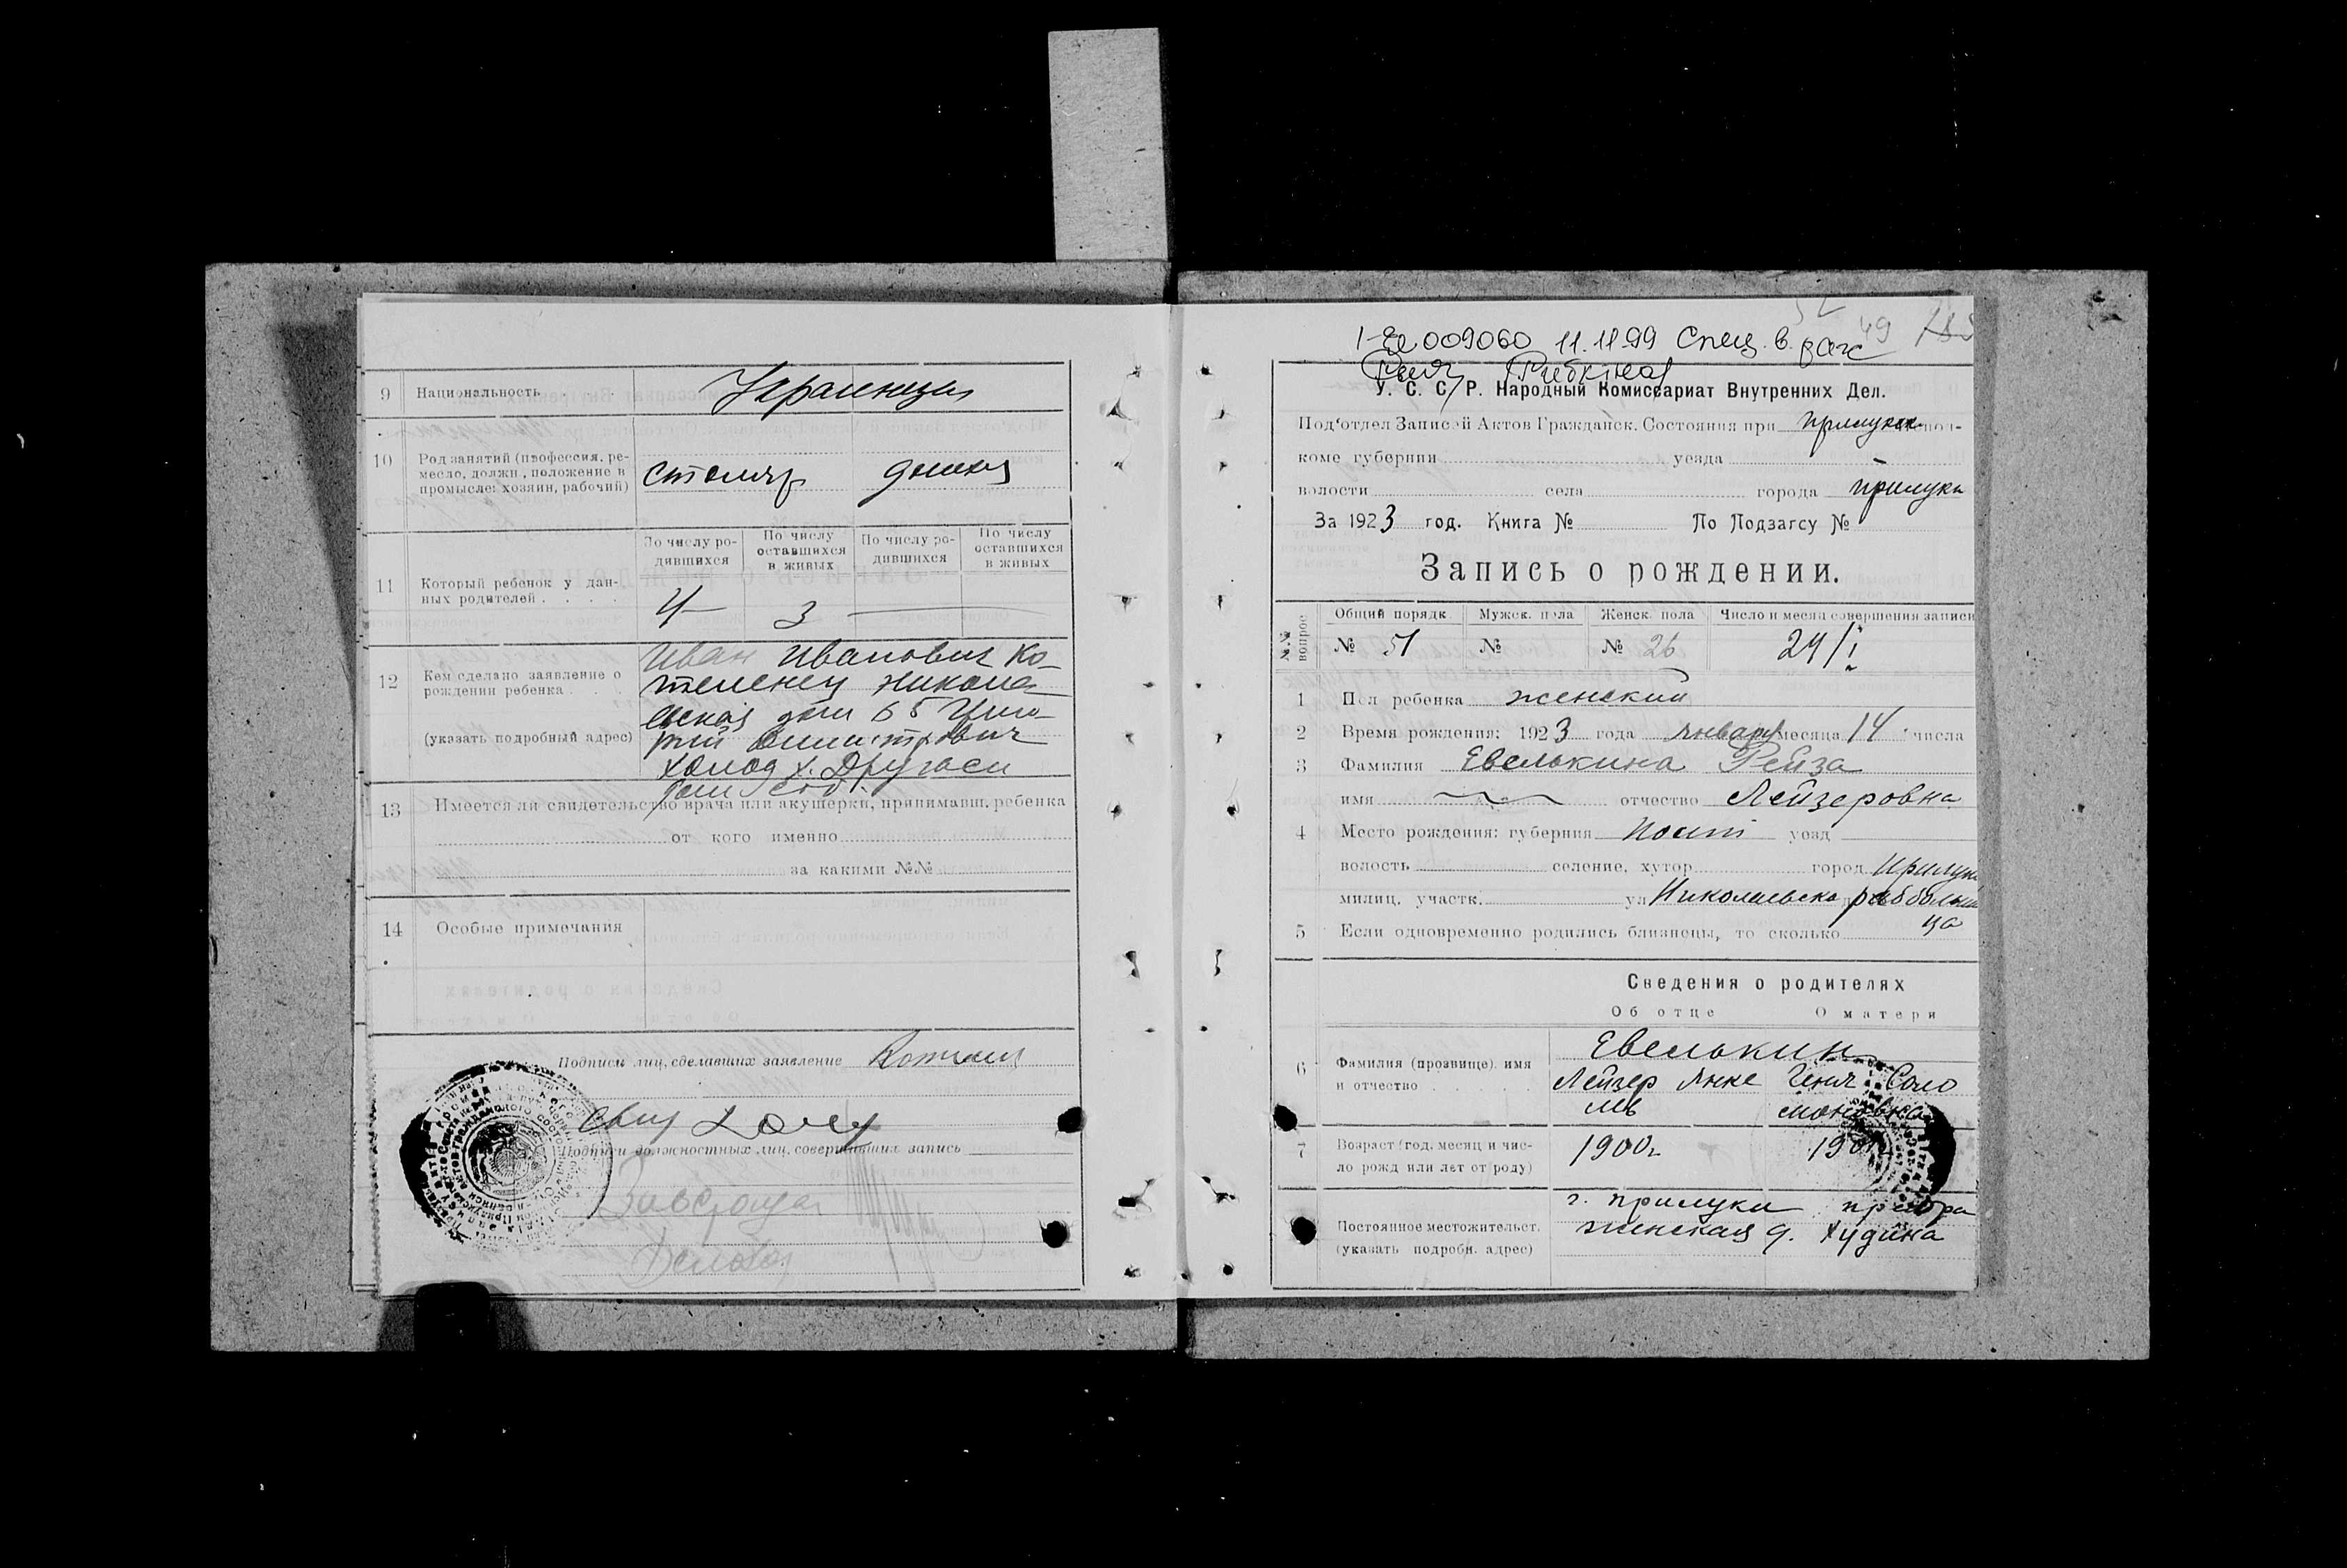 9 Национальность Украинцы
10 Род занятий (профессия, ре-
месло, должн., положение в
промысле: хозяин, рабочий) столяр домох
11 Который ребенок у дан-
ных родителей . . . .
По числу ро-
дившихся
По числу
оставшихся
в живых
По числу ро-
дившихся
По числу
оставшихся
в живых
4 3
12 Кем сделано заявление о
рождении ребенка . . .
(указать подробный адрес)
Иван Иванович Ко-
теленец Никола-
евская дом 65
Дмитрович
Холод х.
13 Имеется ли свидетельство врача или акушерки, принимавш. ребенка
от кого именно
за какими №№
14 Особые примечания
Подписи лиц, сделавших заявление
Подписи должностных лиц, совершивших запись
49
009060 11.11.99 Спец. в.
У. С. С. Р. Народный Комиссариат Внутренних Дел.
Под'отдел Записей Актов Гражданск. Состояния при Прилукск.
коме губернии уезда
волости села города Прилуки
За 1923 год. Книга № По Подзагсу №
Запись о рождении.
№№ вопрос.
Общий порядк. Мужск. пола Женск. пола Число и месяц совершения записи
№ 51 № № 26 24/I
1 Пол ребенка женский
2 Время рождения: 1923 года января месяца 14 числа
3 Фамилия Евелькина Рейза
имя отчество Лейзеровна
4 Место рождения: губерния Полт уезд
волость селение, хутор город Прилуки
милиц. участк. ул Николаевска раб больни
ца
5 Если одновременно родились близнецы, то сколько
Сведения о родителях
Об отце О матери
6 Фамилия (прозвище) имя
и отчество . . . . .
Евелькин
Лейзер Янке
лев
Геня Соло
моновна
7 Возраст (год, месяц и чис-
ло рожд или лет от роду) 1900г
Постоянное местожительст.
(указать подробн. адрес)
г. Прилуки
женская д. Худина